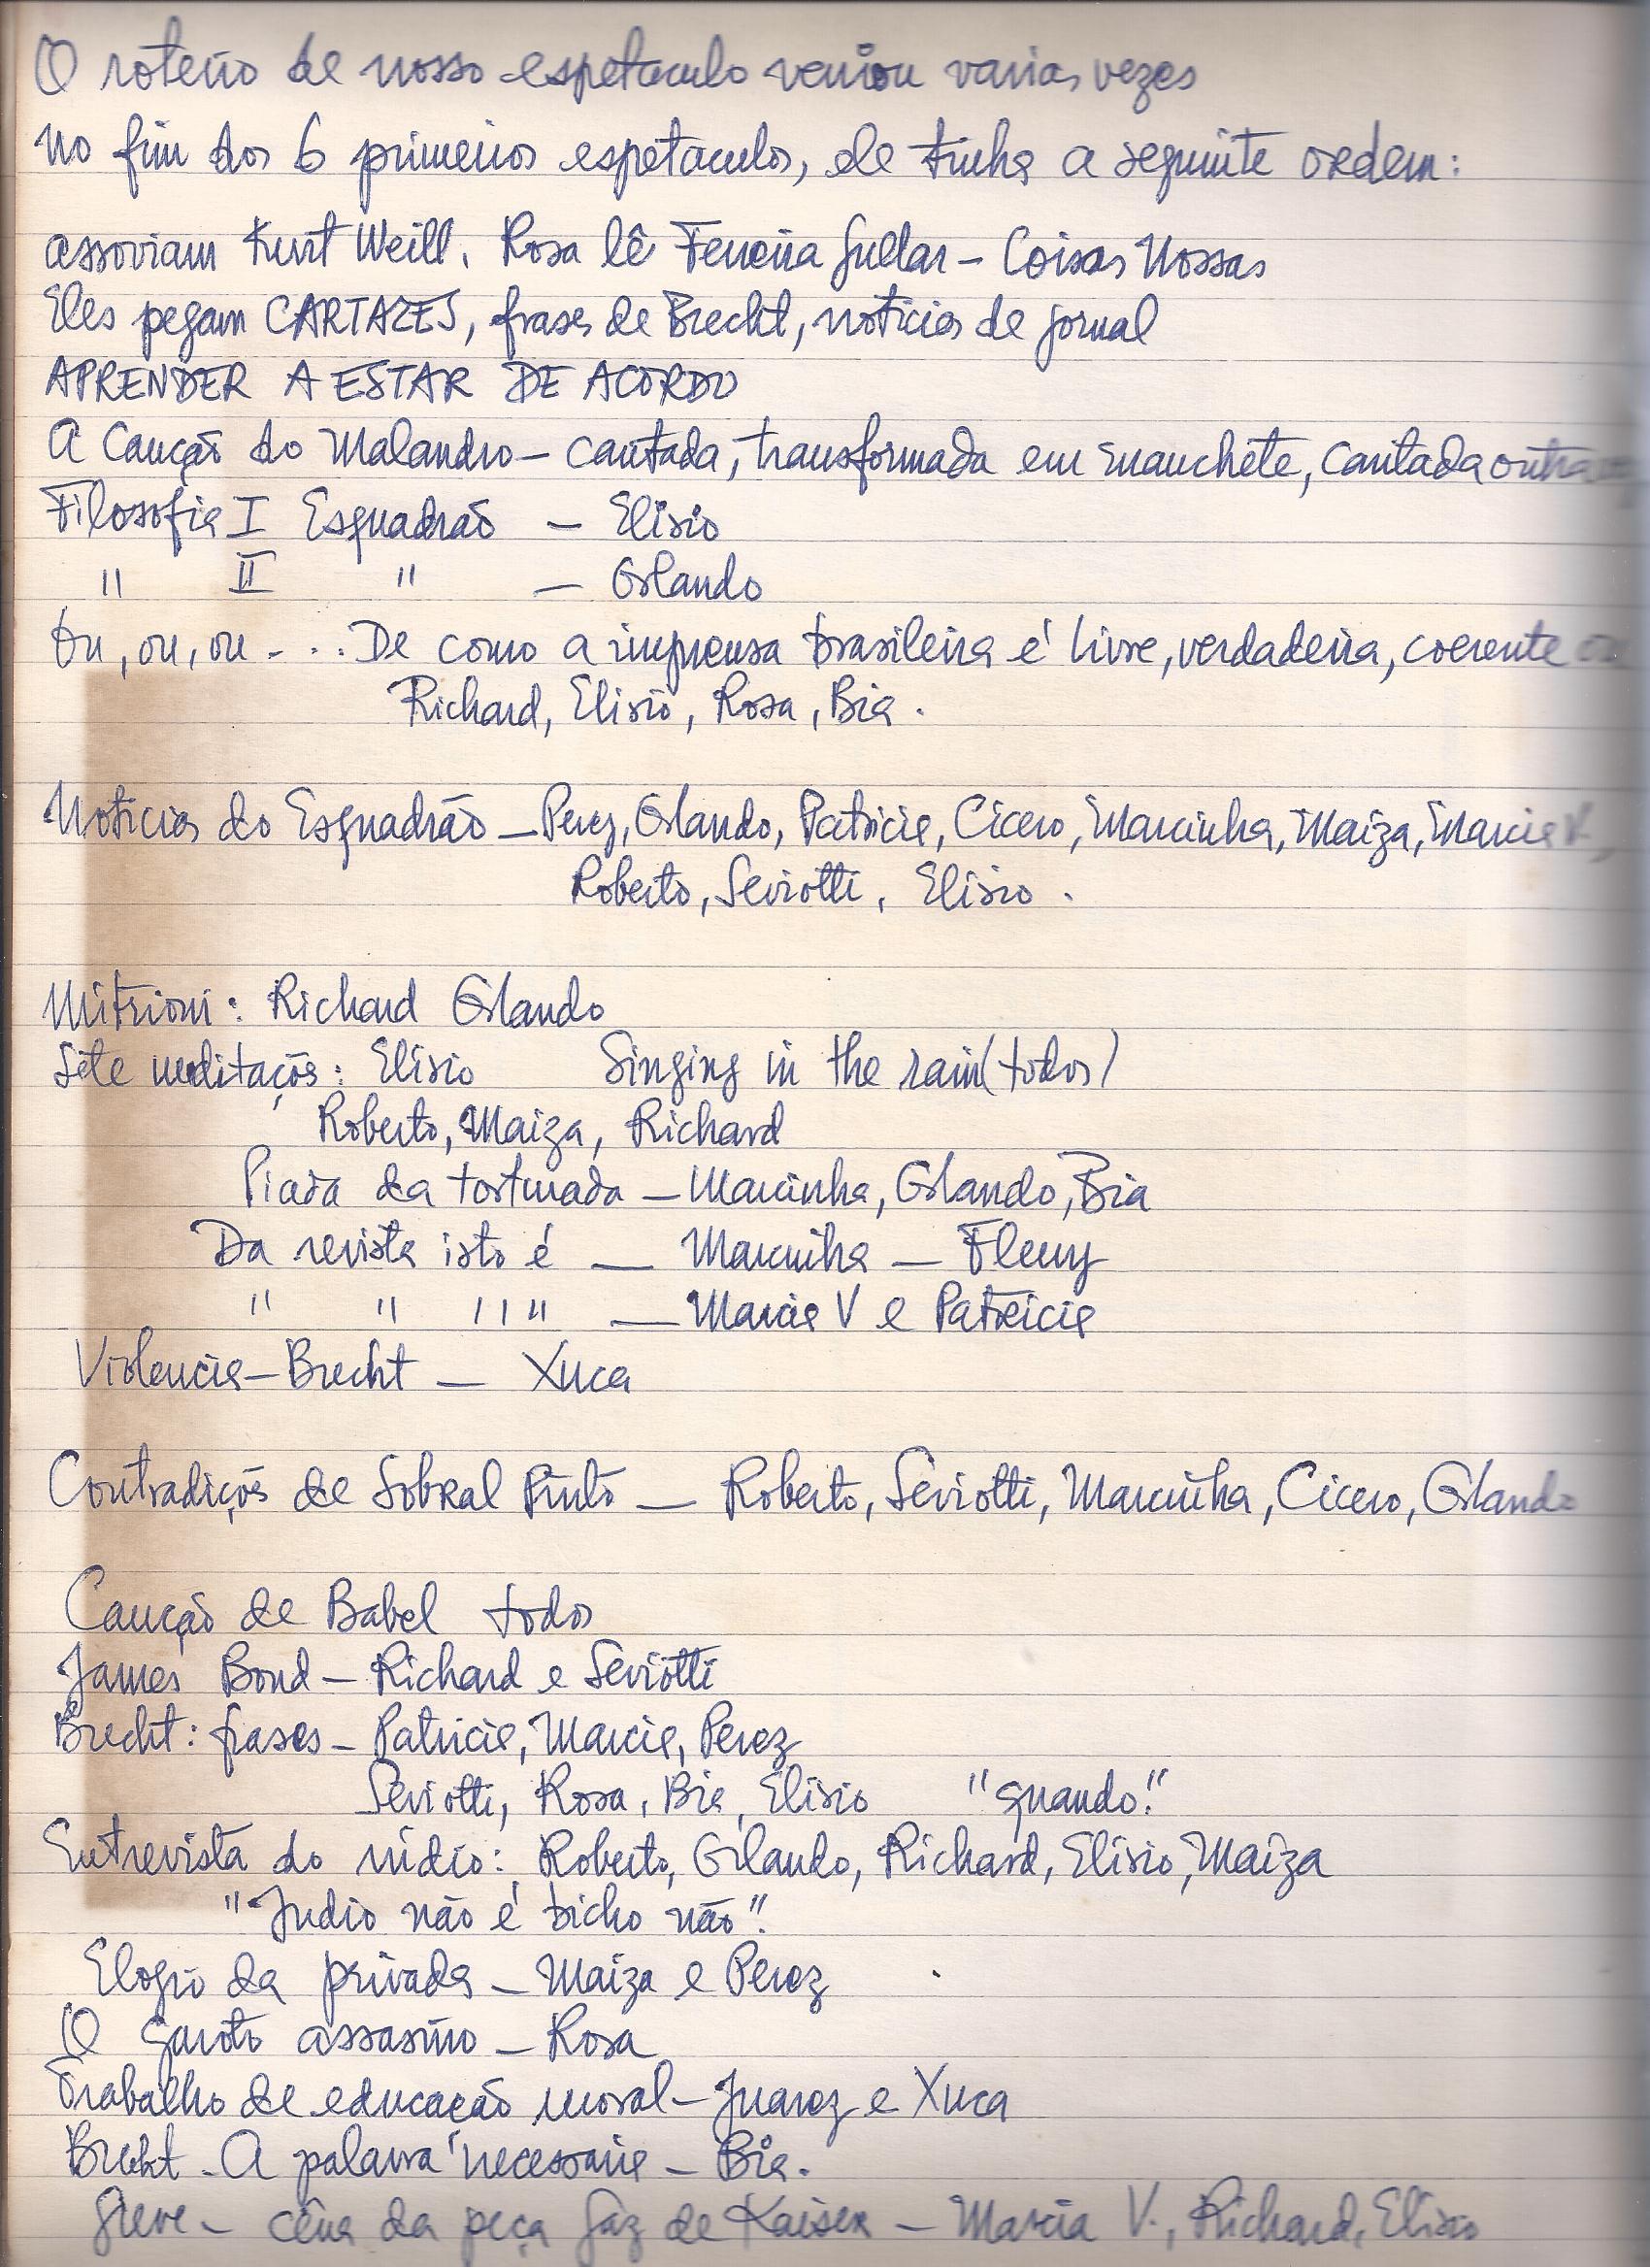 O roteiro de nosso espetaculo variou varias vezes
No fim dos 6 primeiros espetaculos, ele tinha a seguinte ordem:
assoviam Kurt Weill. Rosa lê Ferreira Gullar – Coisas Nossas
Eles pegam CARTAZES, frases de Brecht, noticias de jornal
APRENDER A ESTAR DE ACORDO
A Canção do Malandro – cantada, transformada em manchete, cantada outra
Filosofia I Esquadrão – Elisio
" II " – Orlando
Ou, ou, ou - ... De como a imprensa brasileira é livre, verdadeira, coerente
Richard, Elisio, Rosa, Bia.
Noticias do Esquadrão – Perez, Orlando, Patricia, Cicero, Marcinha, Maiza, Marcia V.,
Roberto, Seviotti, Elisio.
Mitrioni: Richard Orlando
Sete meditações: Elisio Singing in the rain (todos)
Roberto, Maiza, Richard
Piada da torturada – Marcinha, Orlando, Bia
Da revista isto é — Marcinha — Fleury
" " " " — Marcia V e Patricia
Violencia – Brecht — Xuca
Contradições de Sobral Pinto — Roberto, Seviotti, Marcinha, Cicero, Orlando
Canção de Babel todos
James Bond – Richard e Seviotti
Brecht: frases – Patricia, Marcia, Perez
Seviotti, Rosa, Bia, Elisio "quando!"
Entrevista do indio: Roberto, Orlando, Richard, Elisio, Maiza
"Indio não é bicho não".
Elogio da privada – Maiza e Perez
O garoto assasino – Rosa
Trabalho de educação moral – Juarez e Xuca
Brecht - A palavra necessaria – Bia.
Greve – cena da peça Gaz de Kaiser – Marcia V., Richard, Elisio